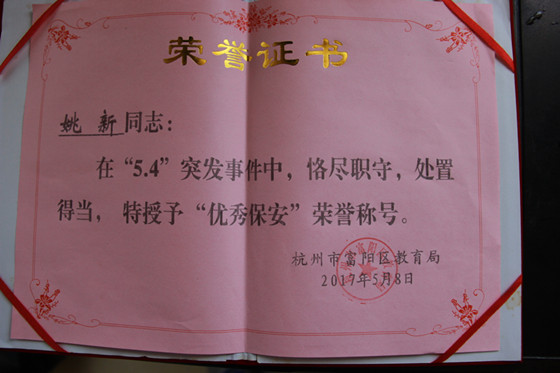 荣誉证书
姚新同志：
在“5.4”突发事件中，恪尽职守，处置
得当，特授予“优秀保安”荣誉称号。
杭州市富阳区教育局
2017年5月8日